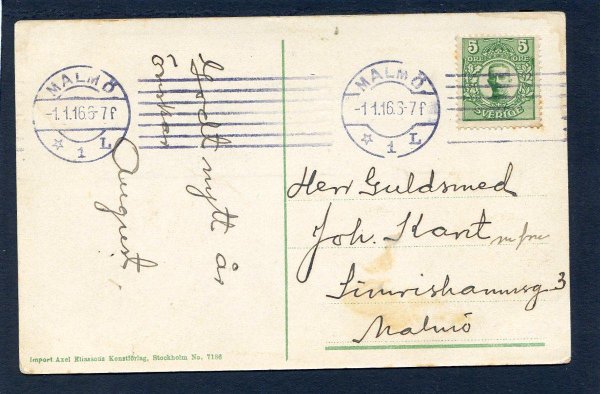 MALMÖ
-1.1.16.6-7f
1 L
MALMÖ
-1.1.16.6-7f
1 L
5 5
ÖRE ÖRE
SVERIGE
Godt nytt år
önskar
August.
Herr Guldsmed
Joh. Kant m fru
Simrishamnsg 3
Malmö
Import Axel Eliassons Konstförlag, Stockholm No. 7186